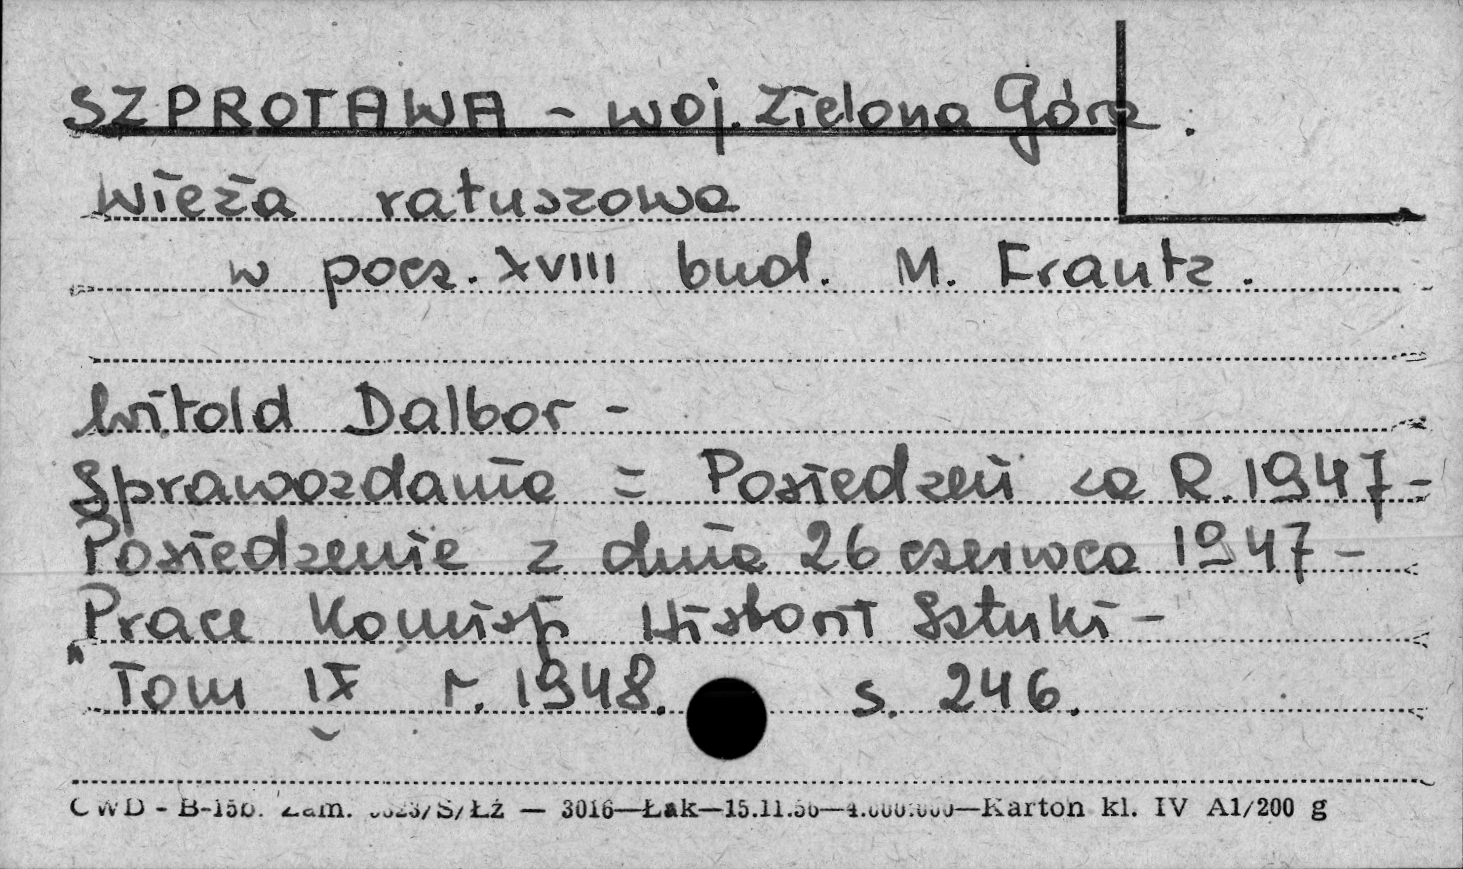 SZPROTAWA - woj. Zielona Góra.
wieża ratuszowa
w pocz. XVIII bud. M. Frantz.
Witold Dalbor -
Sprawozdania = Posiedzeń za R. 1947 -
Posiedzenie z dnia 26 czerwca 1947 -
Prace Komisji Historii Sztuki -
Tom IX r. 1948. s. 246.
CWD - B-15b. Zam. /S/Łż — 3016—Łak—15.11.56—4.000.000—Karton kl. IV A1/200 g